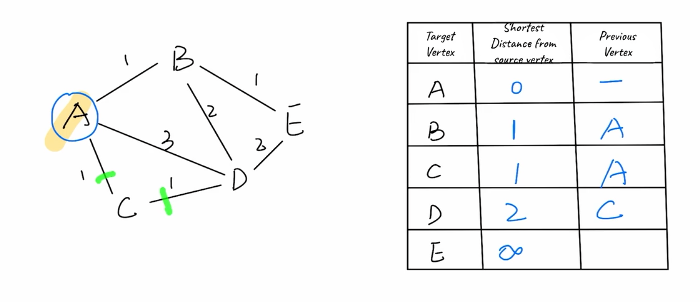 1
B
1
A
2
E
3
2
1
1
D
C
Target Vertex
Shortest Distance from source vertex
Previous Vertex
A 0 —
B 1 A
C 1 A
D 2 C
E ∞